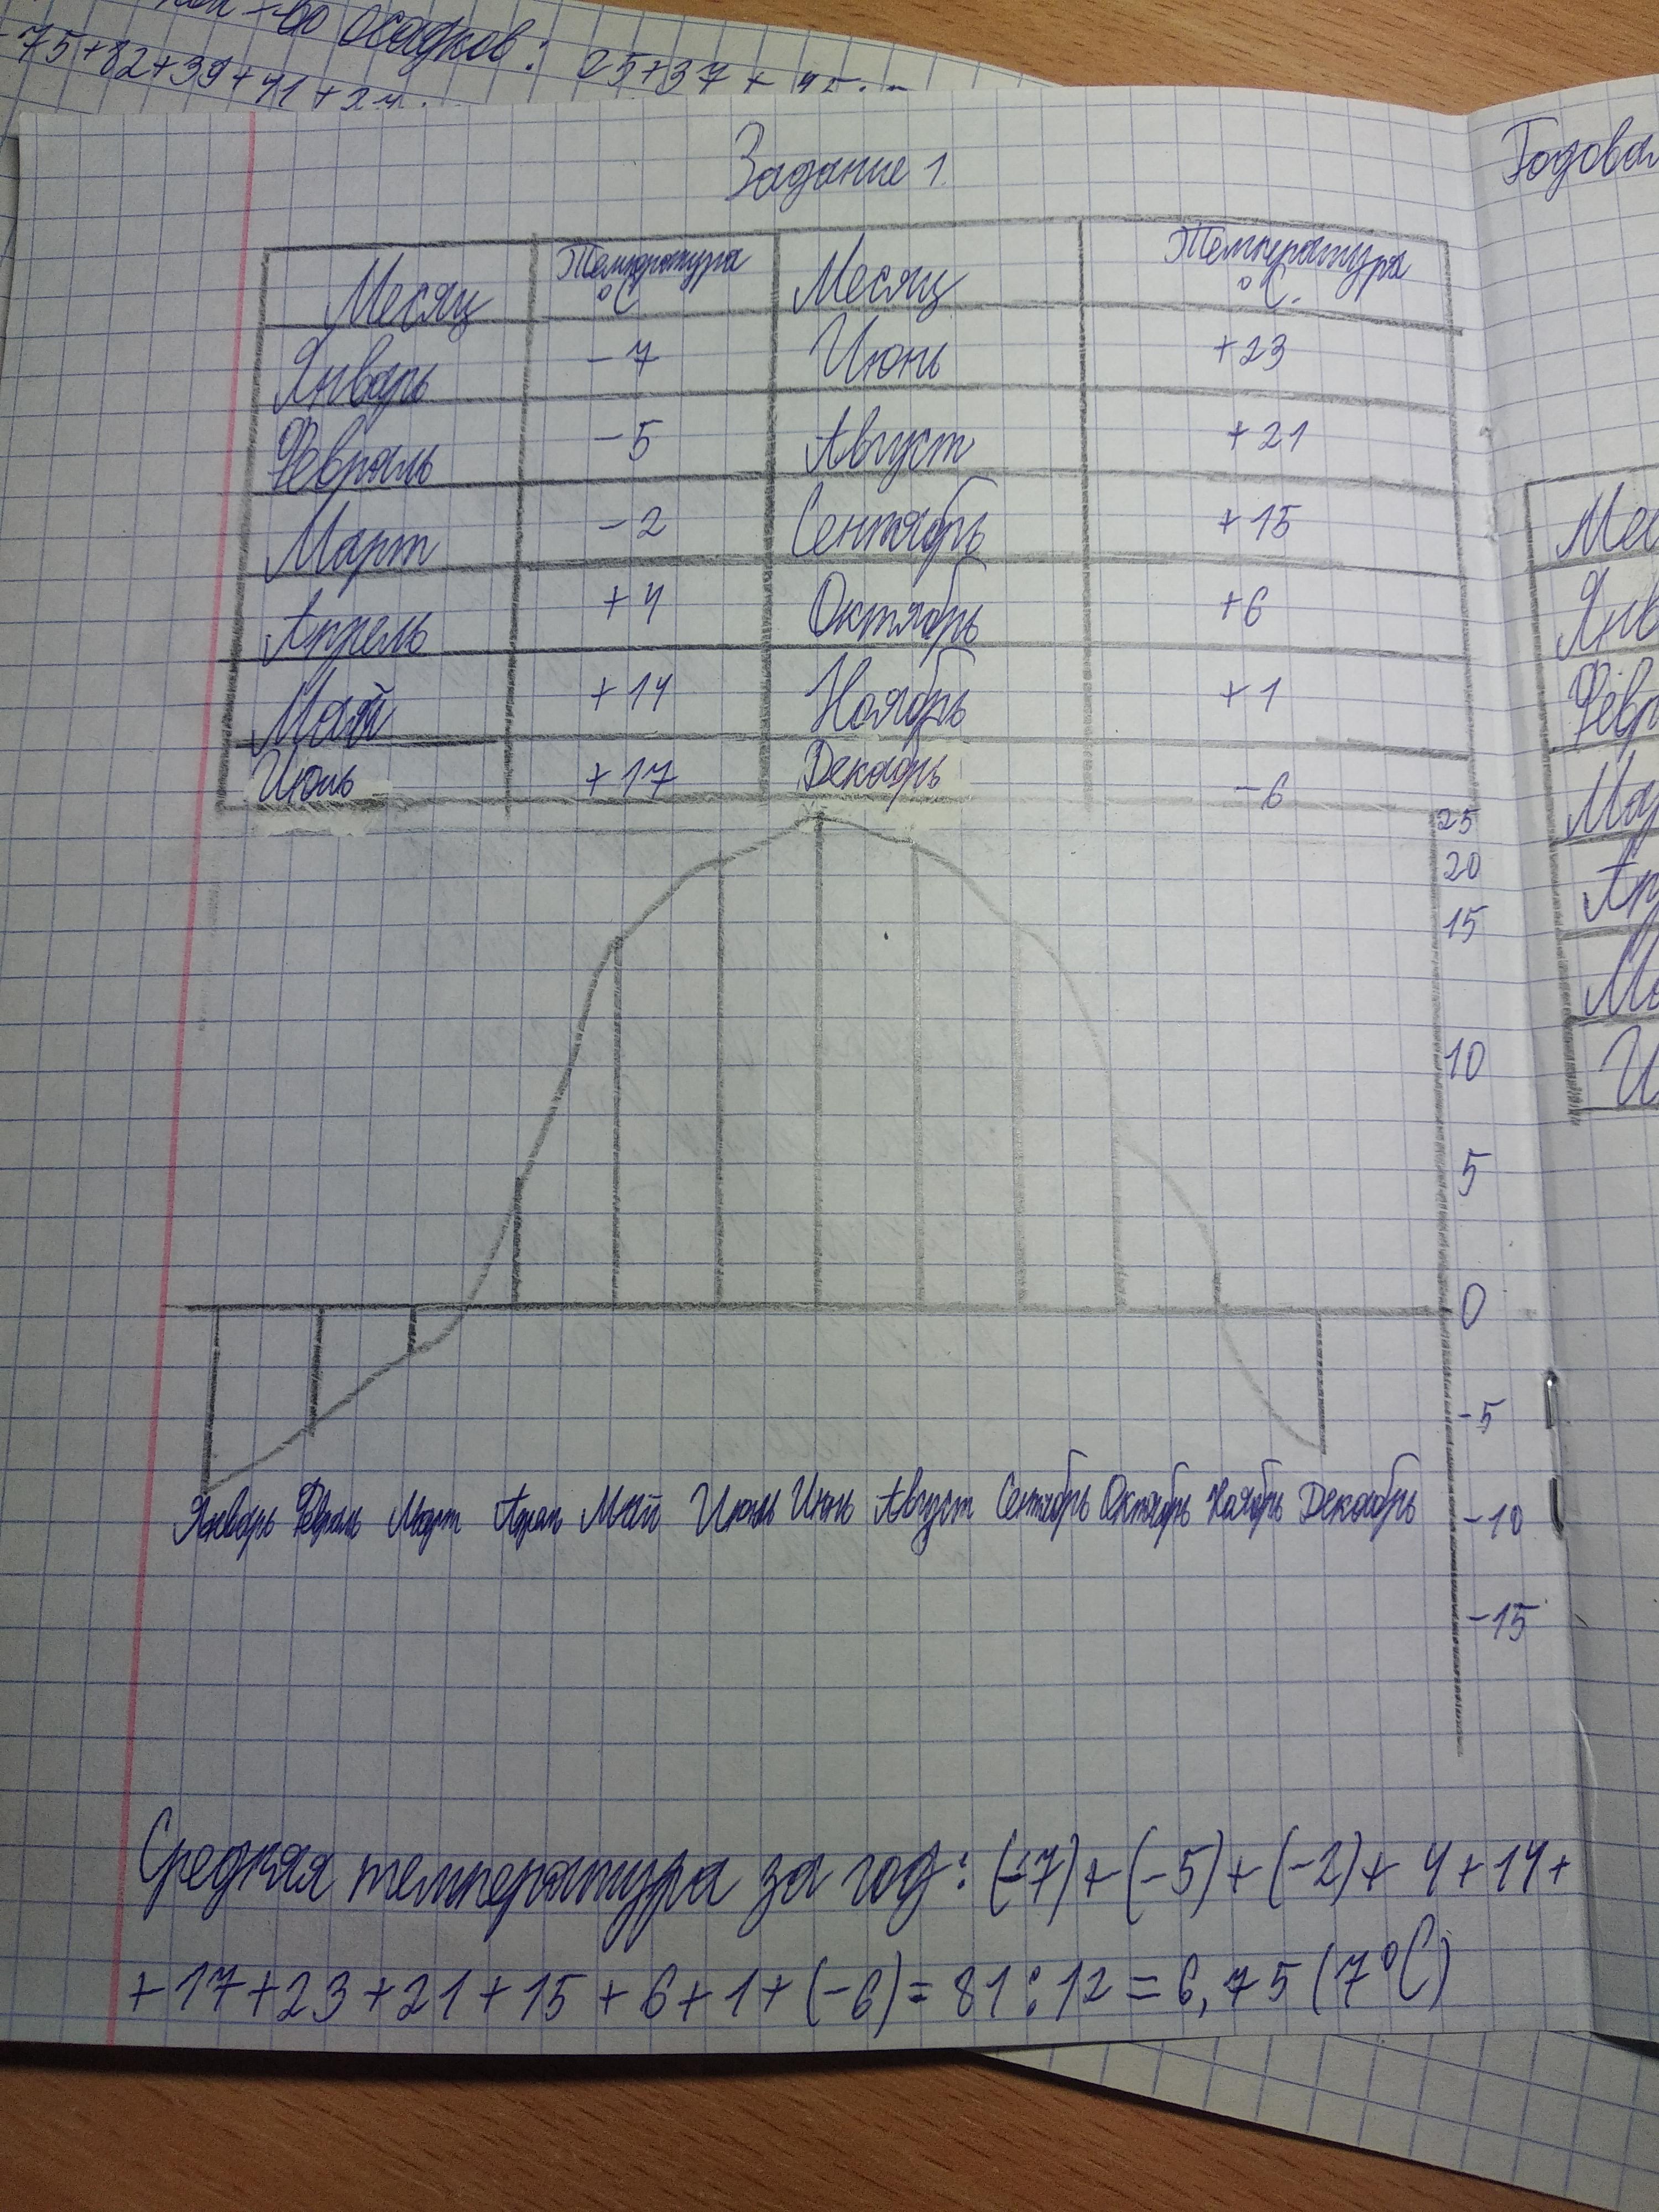 осадков: 25+37+
75+82+39+41+
Задание 1.
Годовая
Месяц Температура °C Месяц Температура °C.
Январь -7 Июнь +23
Февраль -5 Август +21
Март -2 Сентябрь +15
Апрель +4 Октябрь +6
Май +14 Ноябрь +1
Июль +17 Декабрь -6
25
20
15
10
5
0
-5
-10
-15
Январь Февраль Март Апрель Май Июль Июнь Август Сентябрь Октябрь Ноябрь Декабрь
Средняя температура за год: (-7)+(-5)+(-2)+4+14+
+17+23+21+15+6+1+(-6)=81:12=6,75(7°C)
Мес
Янв
Февр
Мар
Ап
Ма
И